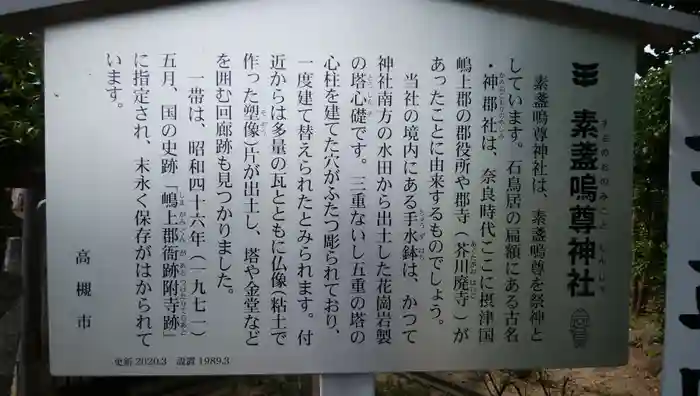 素盞嗚尊神社
すさのおのみことじんじゃ
素盞嗚尊神社は、素盞嗚尊を祭神と
しています。石鳥居の扁額にある古名
・神郡社は、奈良時代ここに摂津国
嶋上郡の郡役所や郡寺（芥川廃寺）が
あったことに由来するものでしょう。
当社の境内にある手水鉢は、かつて
神社南方の水田から出土した花崗岩製
の塔心礎です。三重ないし五重の塔の
心柱を建てた穴がふたつ彫られており、
一度建て替えられたとみられます。付
近からは多量の瓦とともに仏像（粘土で
作った塑像）片が出土し、塔や金堂など
を囲む回廊跡も見つかりました。
一帯は、昭和四十六年（一九七一）
五月、国の史跡「嶋上郡衙跡附寺跡」
に指定され、末永く保存がはかられて
います。
高槻市
更新 2020.3 設置 1989.3